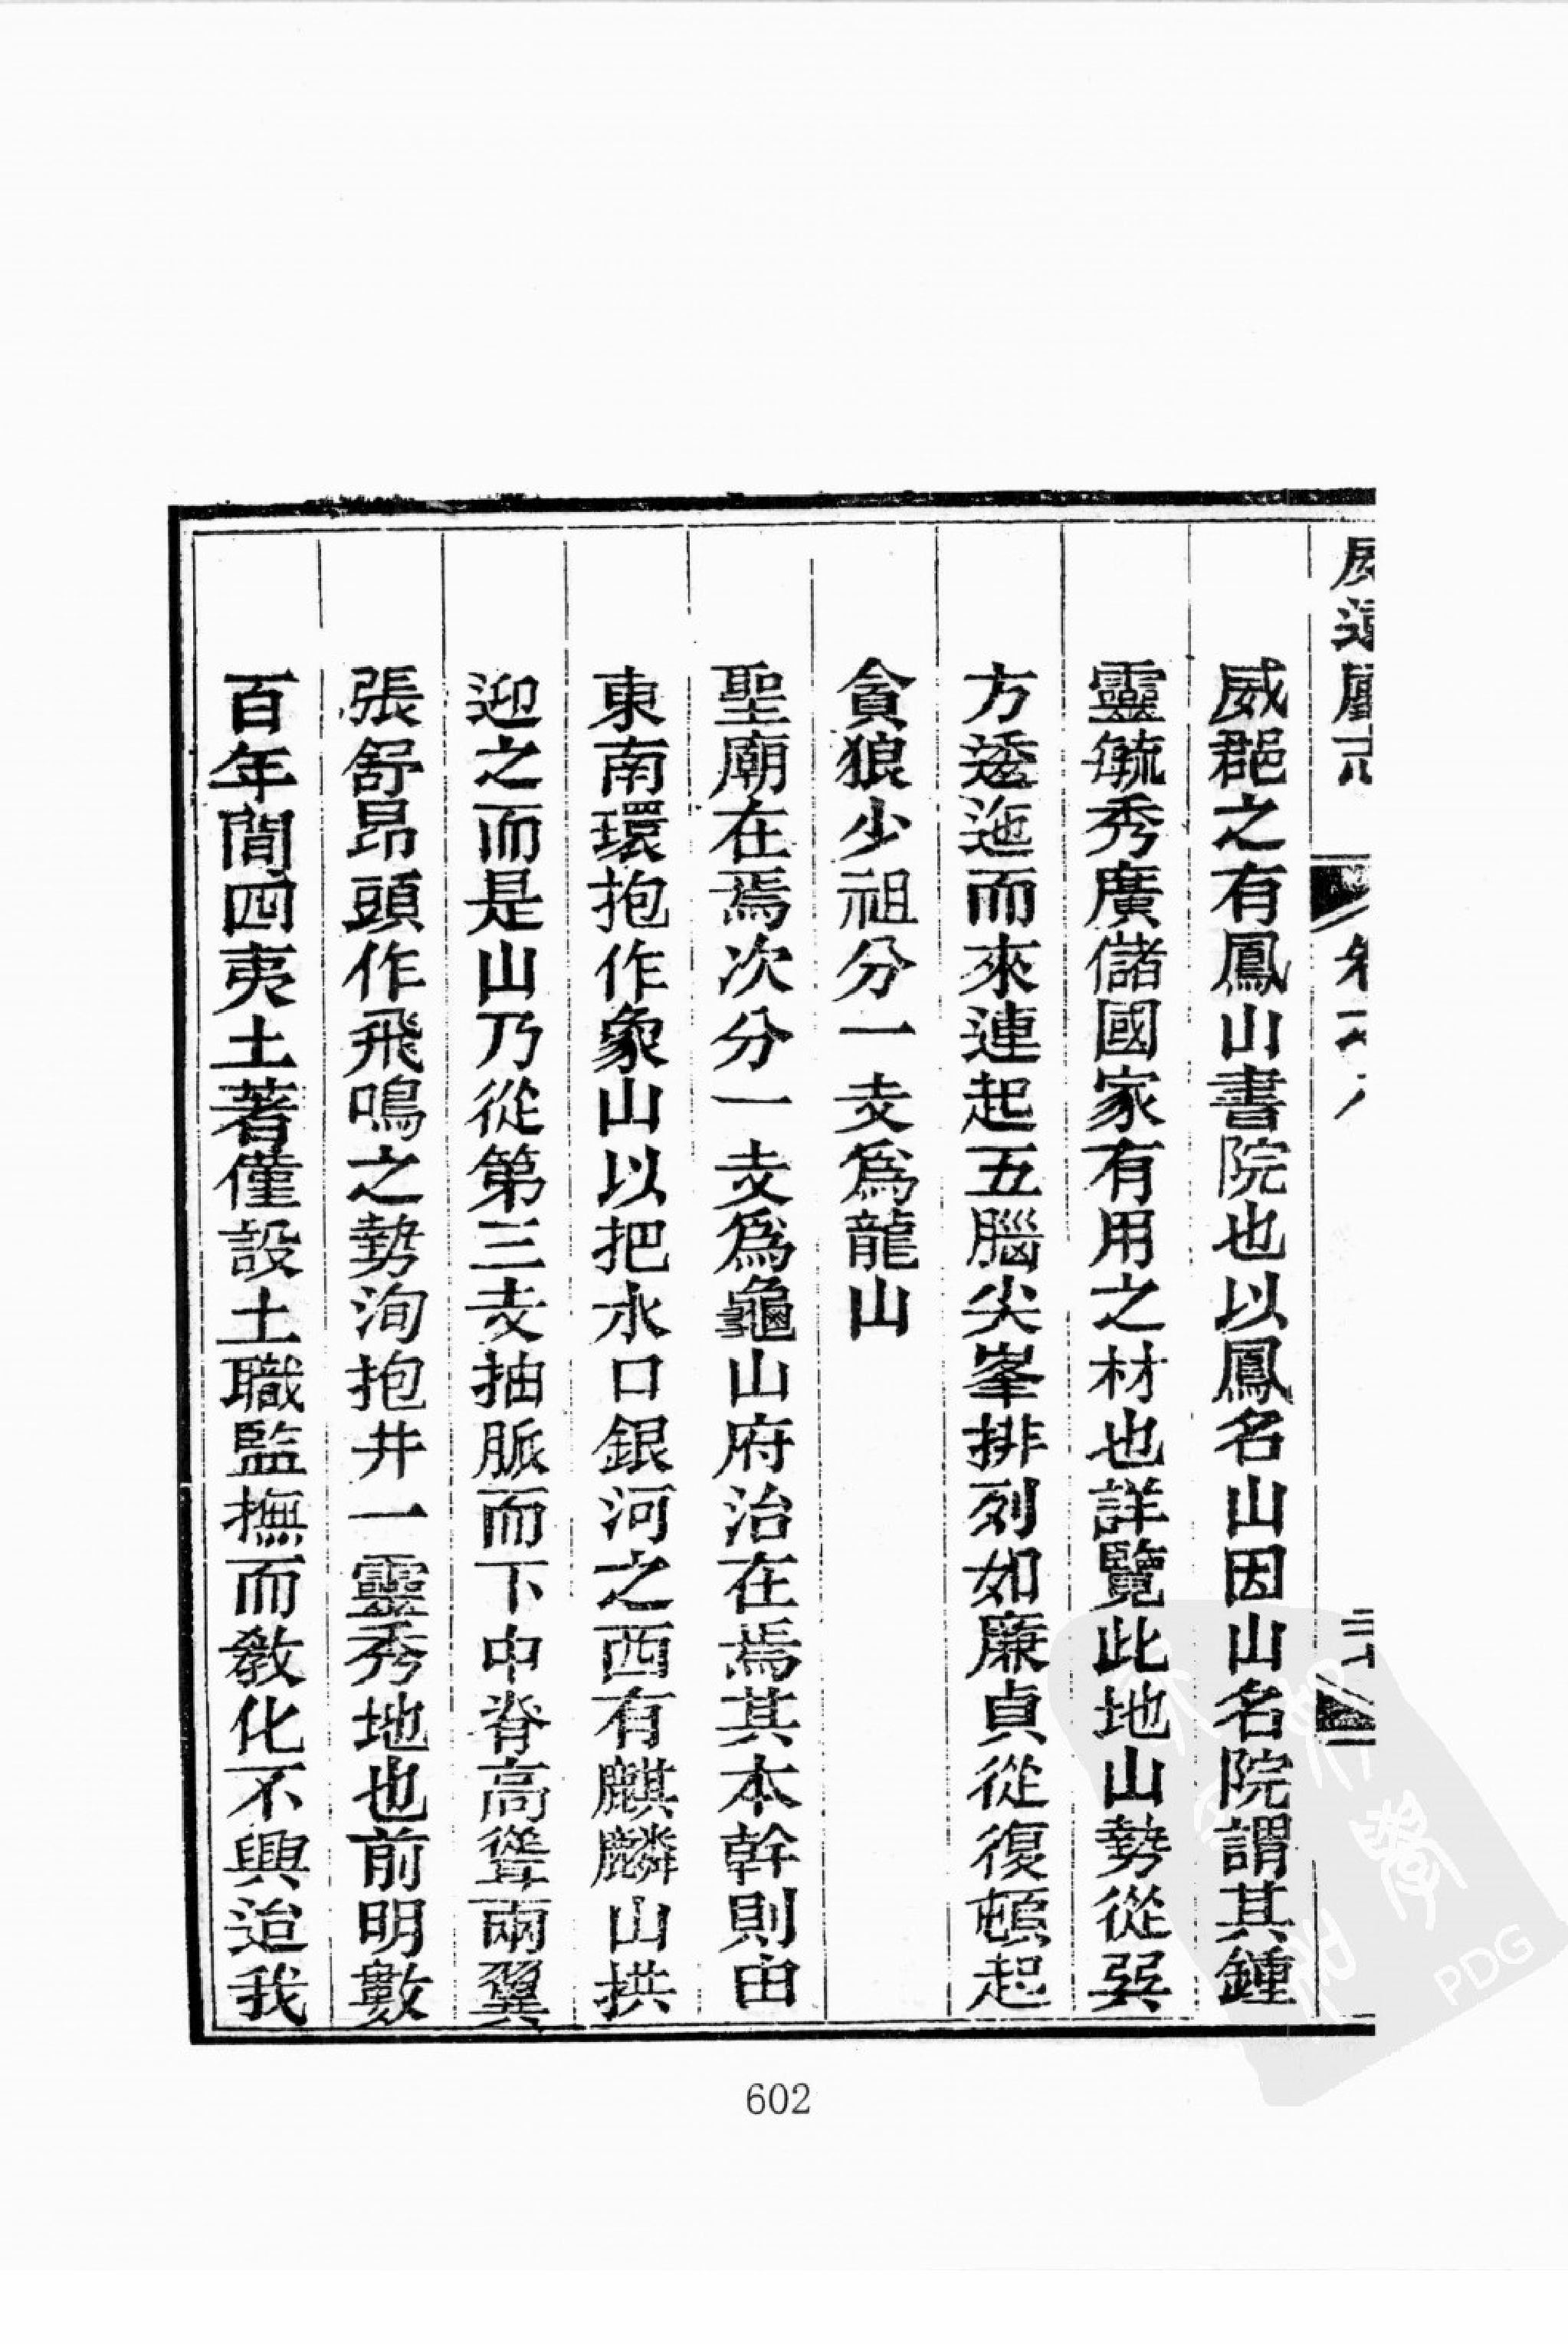 威郡之有鳳山書院也以鳳名山因山名院謂其鍾
靈毓秀廣儲國家有用之材也詳覽此地山勢從巽
方逶迤而來連起五腦尖峯排列如廉貞從復頓起
貪狼少祖分一支爲龍山
聖廟在焉次分一支爲龜山府治在焉其本幹則由
東南環抱作象山以把水口銀河之西有麒麟山拱
迎之而是山乃從第三支抽脈而下中脊高聳兩翼
張舒昂頭作飛鳴之勢洵抱井一靈秀地也前明數
百年間四夷土著僅設土職監撫而教化不興迨我
602
PDG